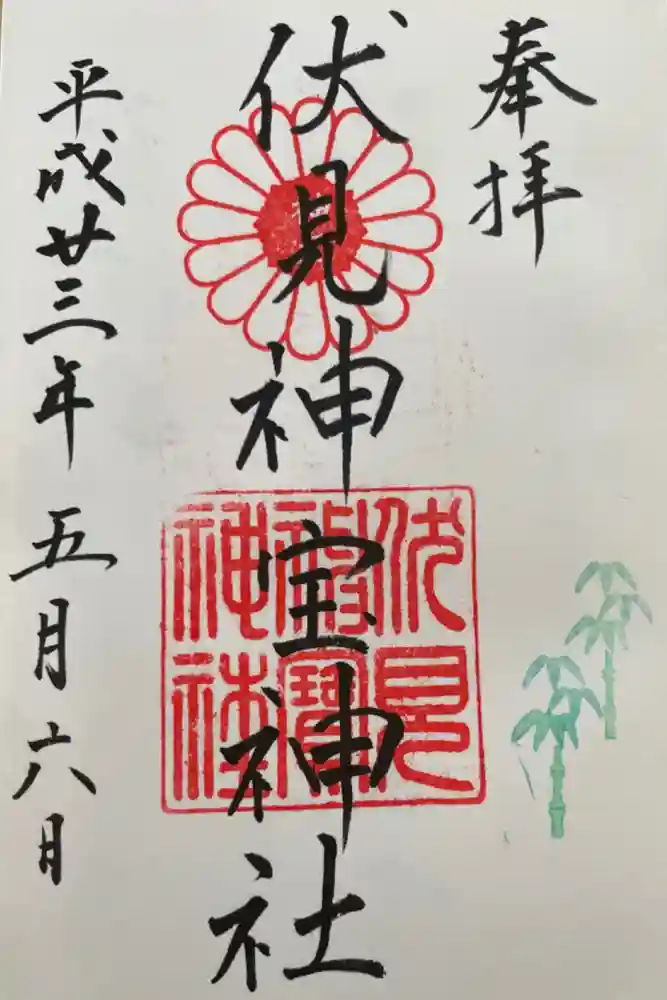 奉拝
伏見神宝神社
伏見神寶神社
平成廿三年五月六日